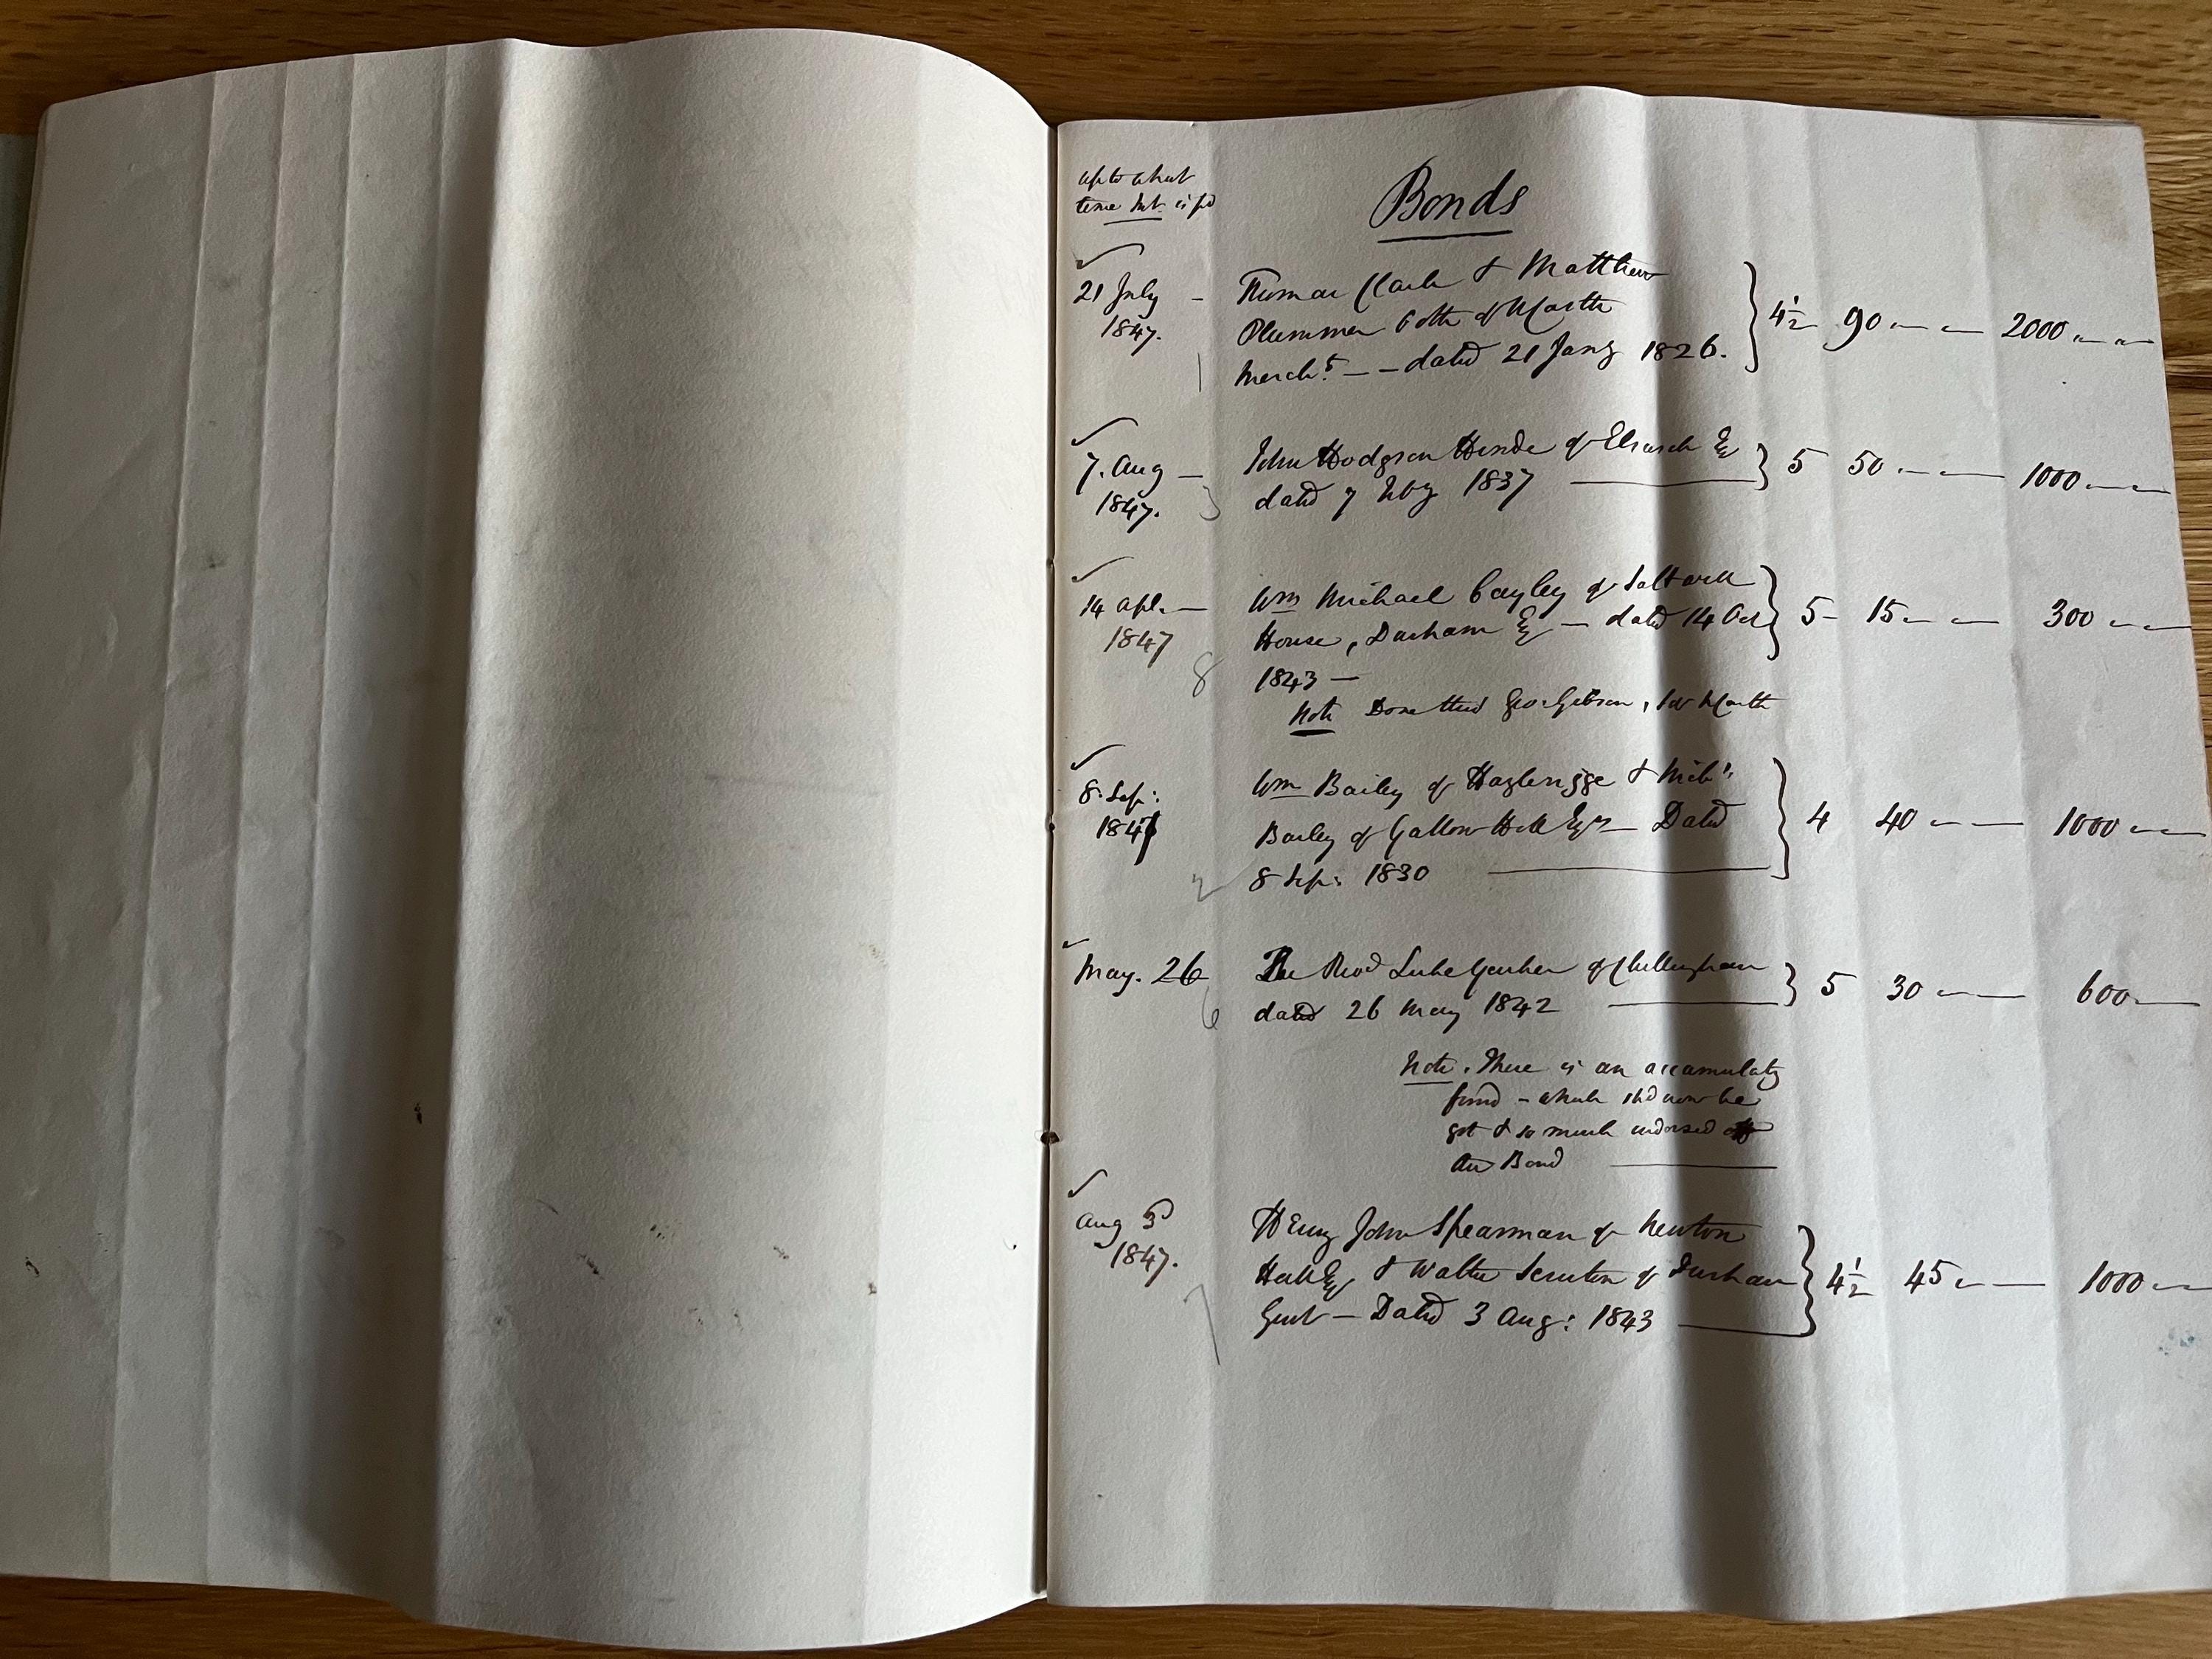 up to what
time Int. is pd
Bonds
21 July — Thomas Clark & Matthew
1847. Plummer both of Ncastle 4½ 90 — — 2000 — —
1 Merchts — — dated 21 Jany 1826.
7. Aug — John Hodgson Hinde of Elswick Esq 5 50 — — 1000 — —
1847. 3 dated 7 Feby 1837
14 Apl. — Wm Michael Cayley of
1847 House, Durham Esq — dated 14 Oct 5 — 15 — — 300 — —
8 1843 —
Note Done thro' Geo. Gibson, Ncastle
8. Sep: Wm Bailey of Hazlerigge & Nichs
1847 Bailey of Gallow Hill Esqrs — Dated 4 40 — — 1000 — —
2 8 Sep: 1830
May. 26 The Revd Luke Yarker of Chillingham 5 30 — — 600 —
6 dated 26 May 1842
Note. There is an accumulatg
fund — which shd now be
got & so much indorsed off
the Bond
Aug 3d Henry John Spearman of Newton
1847. Hall Esq & Walter Scruton of Durham 4½ 45 — — 1000 —
7 Gent — Dated 3 Aug: 1843